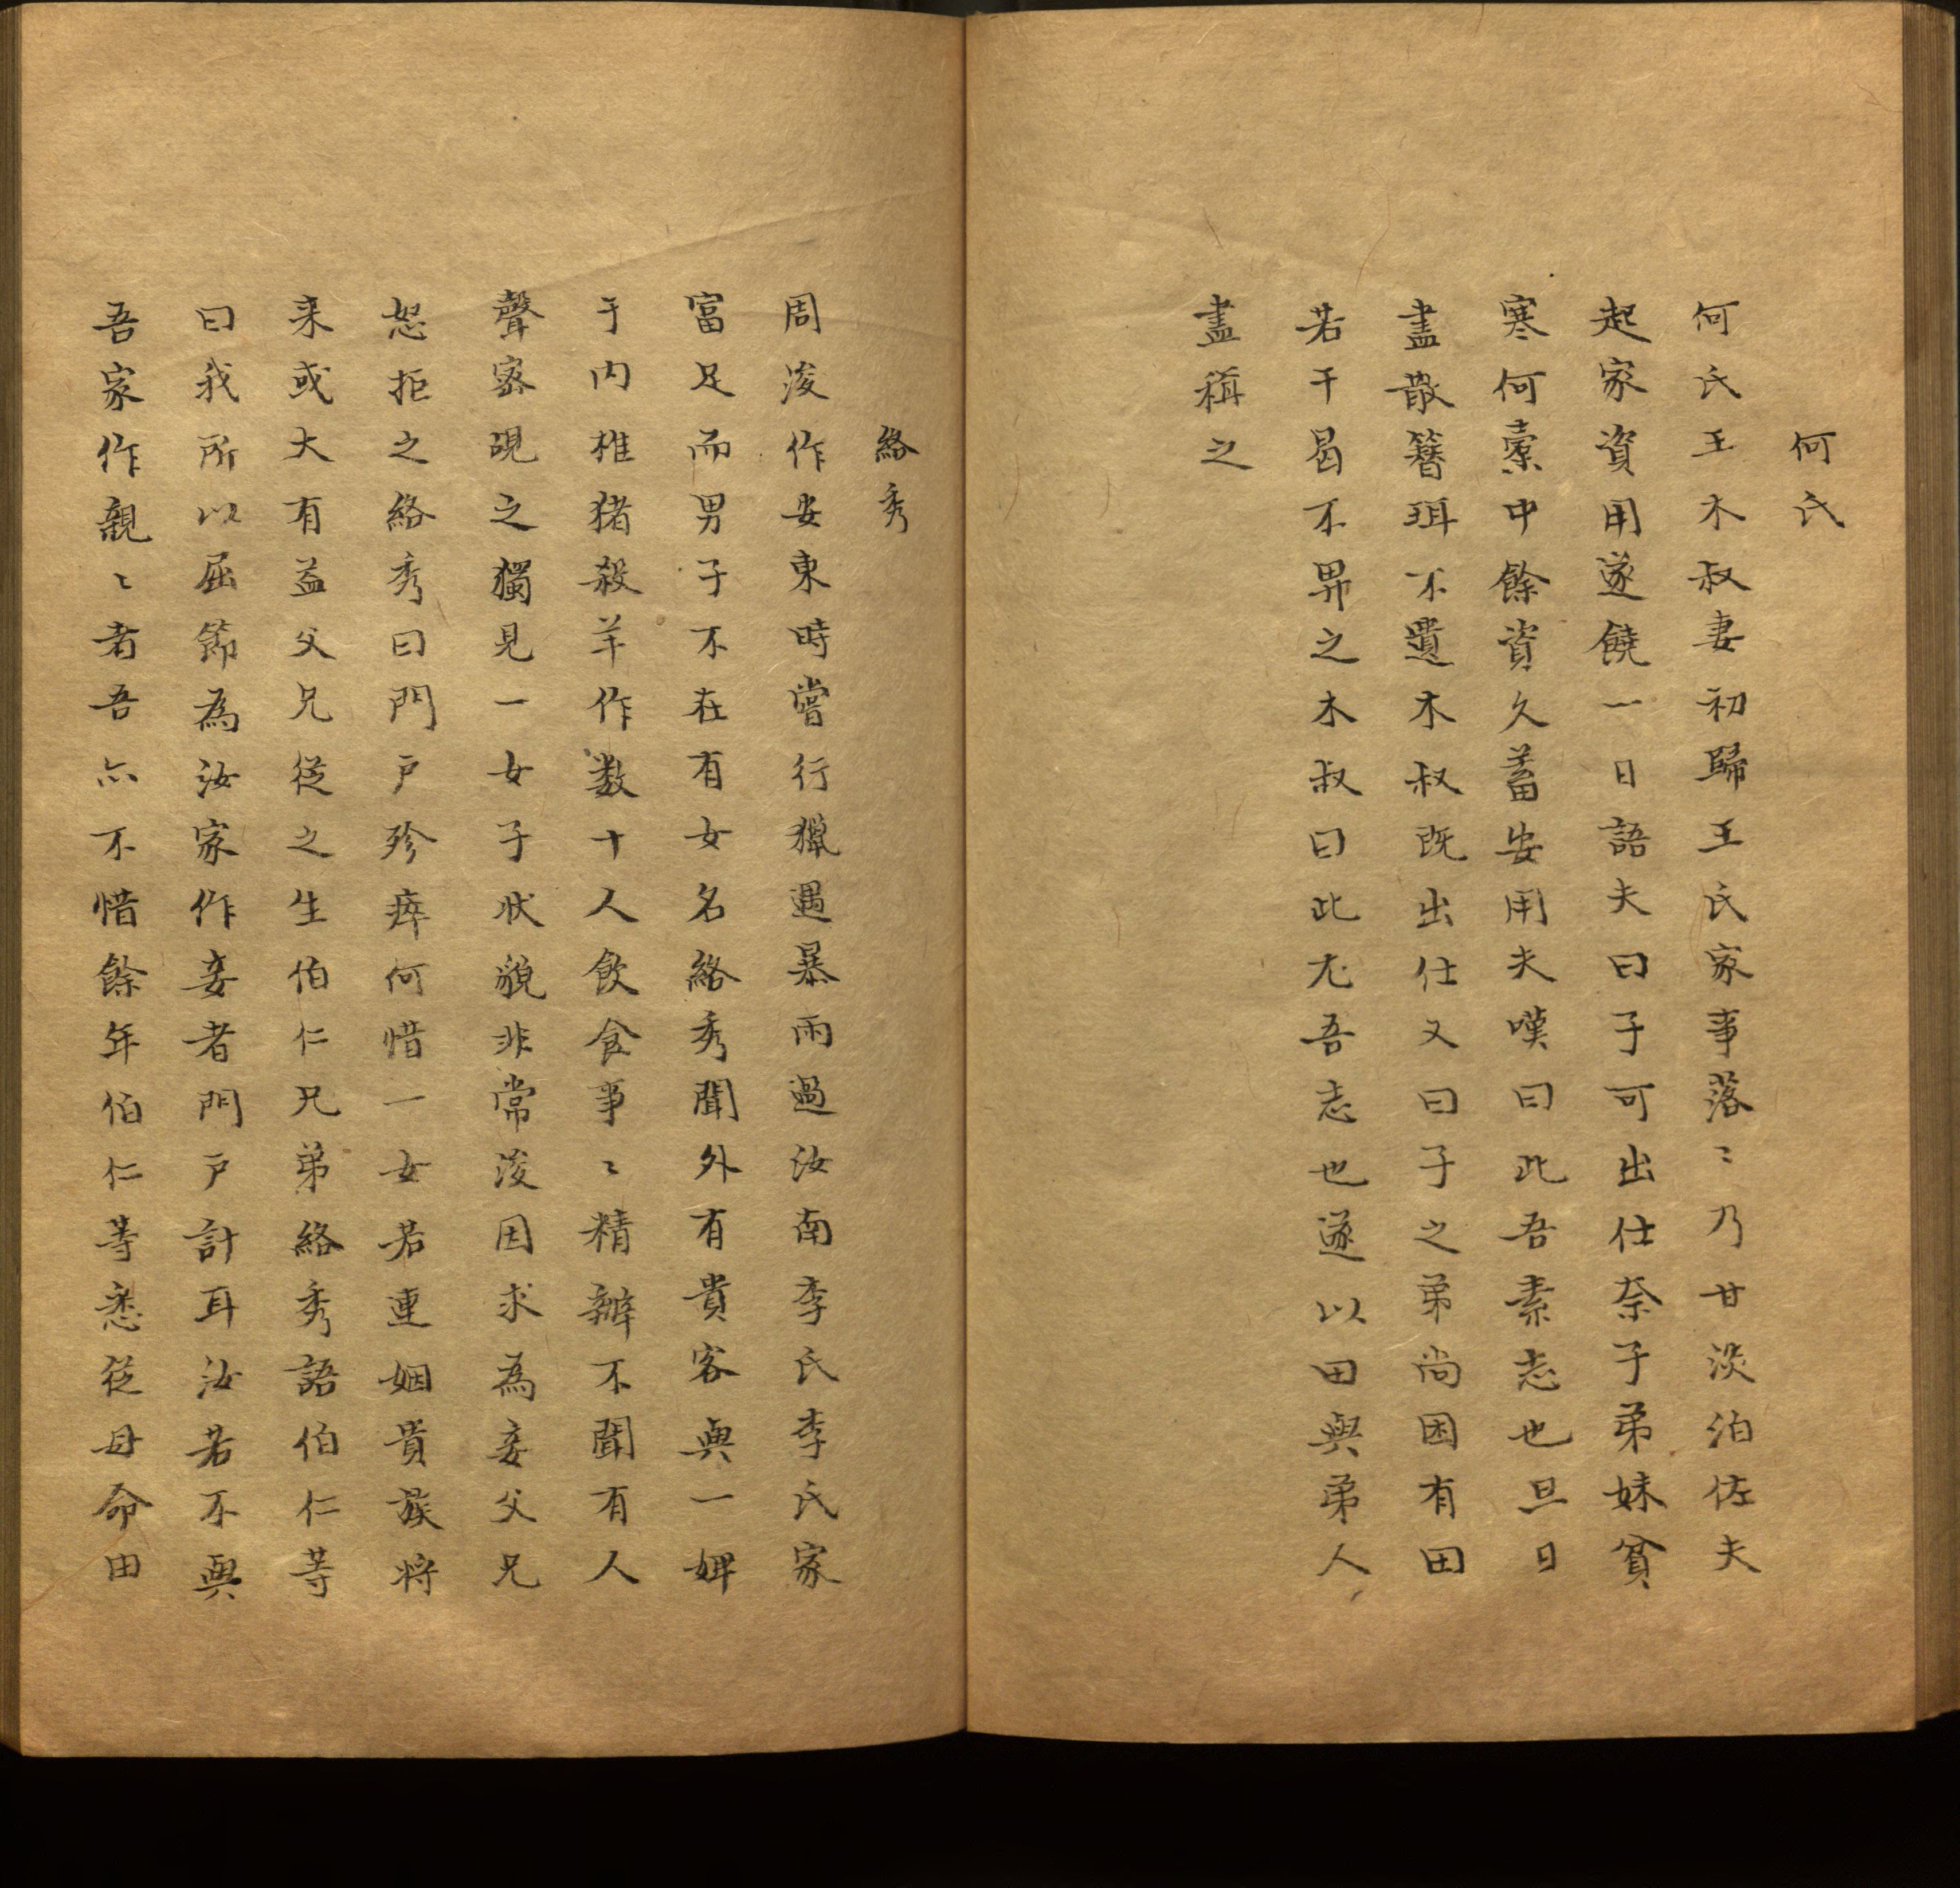 何氏
何氏王木叔妻初歸王氏家事落〻乃甘淡泊佐夫
起家資用遂饒一日語夫曰子可出仕奈子弟妹貧
寒何橐中餘資久蓄安用夫嘆曰此吾素志也旦日
盡散簪珥不遺木叔既出仕又曰子之弟尚困有田
若干曷不畀之木叔曰此尤吾志也遂以田與弟人
盡稱之
絡秀
周浚作安東時嘗行獵遇暴雨過汝南李氏李氏家
富足而男子不在有女名絡秀聞外有貴客與一婢
于内椎猪殺羊作数十人飲食事〻精辦不聞有人
聲密覘之獨見一女子狀貌非常浚因求為妾父兄
怒拒之絡秀曰門户殄瘁何惜一女若連姻貴族將
来或大有益父兄從之生伯仁兄弟絡秀語伯仁等
曰我所以屈節為汝家作妾者門户計耳汝若不與
吾家作親〻者吾亦不惜餘年伯仁等悉從母命由